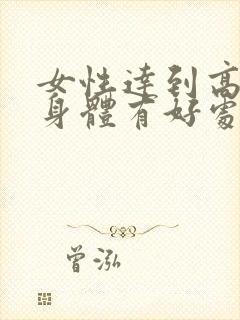 女性達到高
身體有好處
曾泓